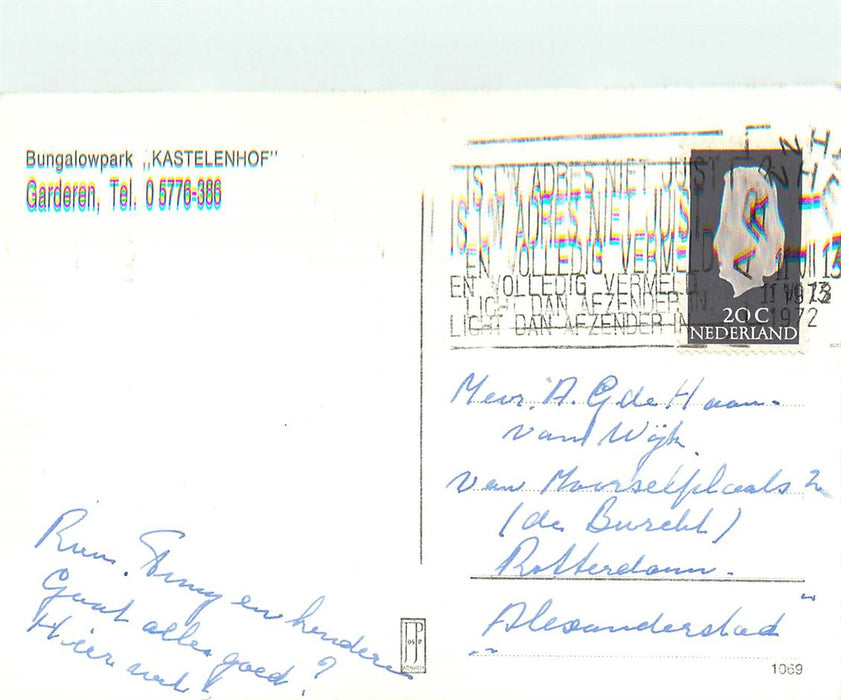 Bungalowpark „KASTELENHOF"
Garderen, Tel. 0 5776-386
IS UW ADRES NIET JUIST
IS UW ADRES NIET JUIST
EN VOLLEDIG VERMELD
EN VOLLEDIG VERMELD
LICHT DAN AFZENDER IN
LICHT DAN AFZENDER IN
1972
20 C
NEDERLAND
Mevr. A. G de Haan-
van Wijk
van Moorselplaats 2
(de Burcht)
Rotterdam.
"Alexanderstad"
en kinderen
Gaat alles goed?
Hier wel!
1069